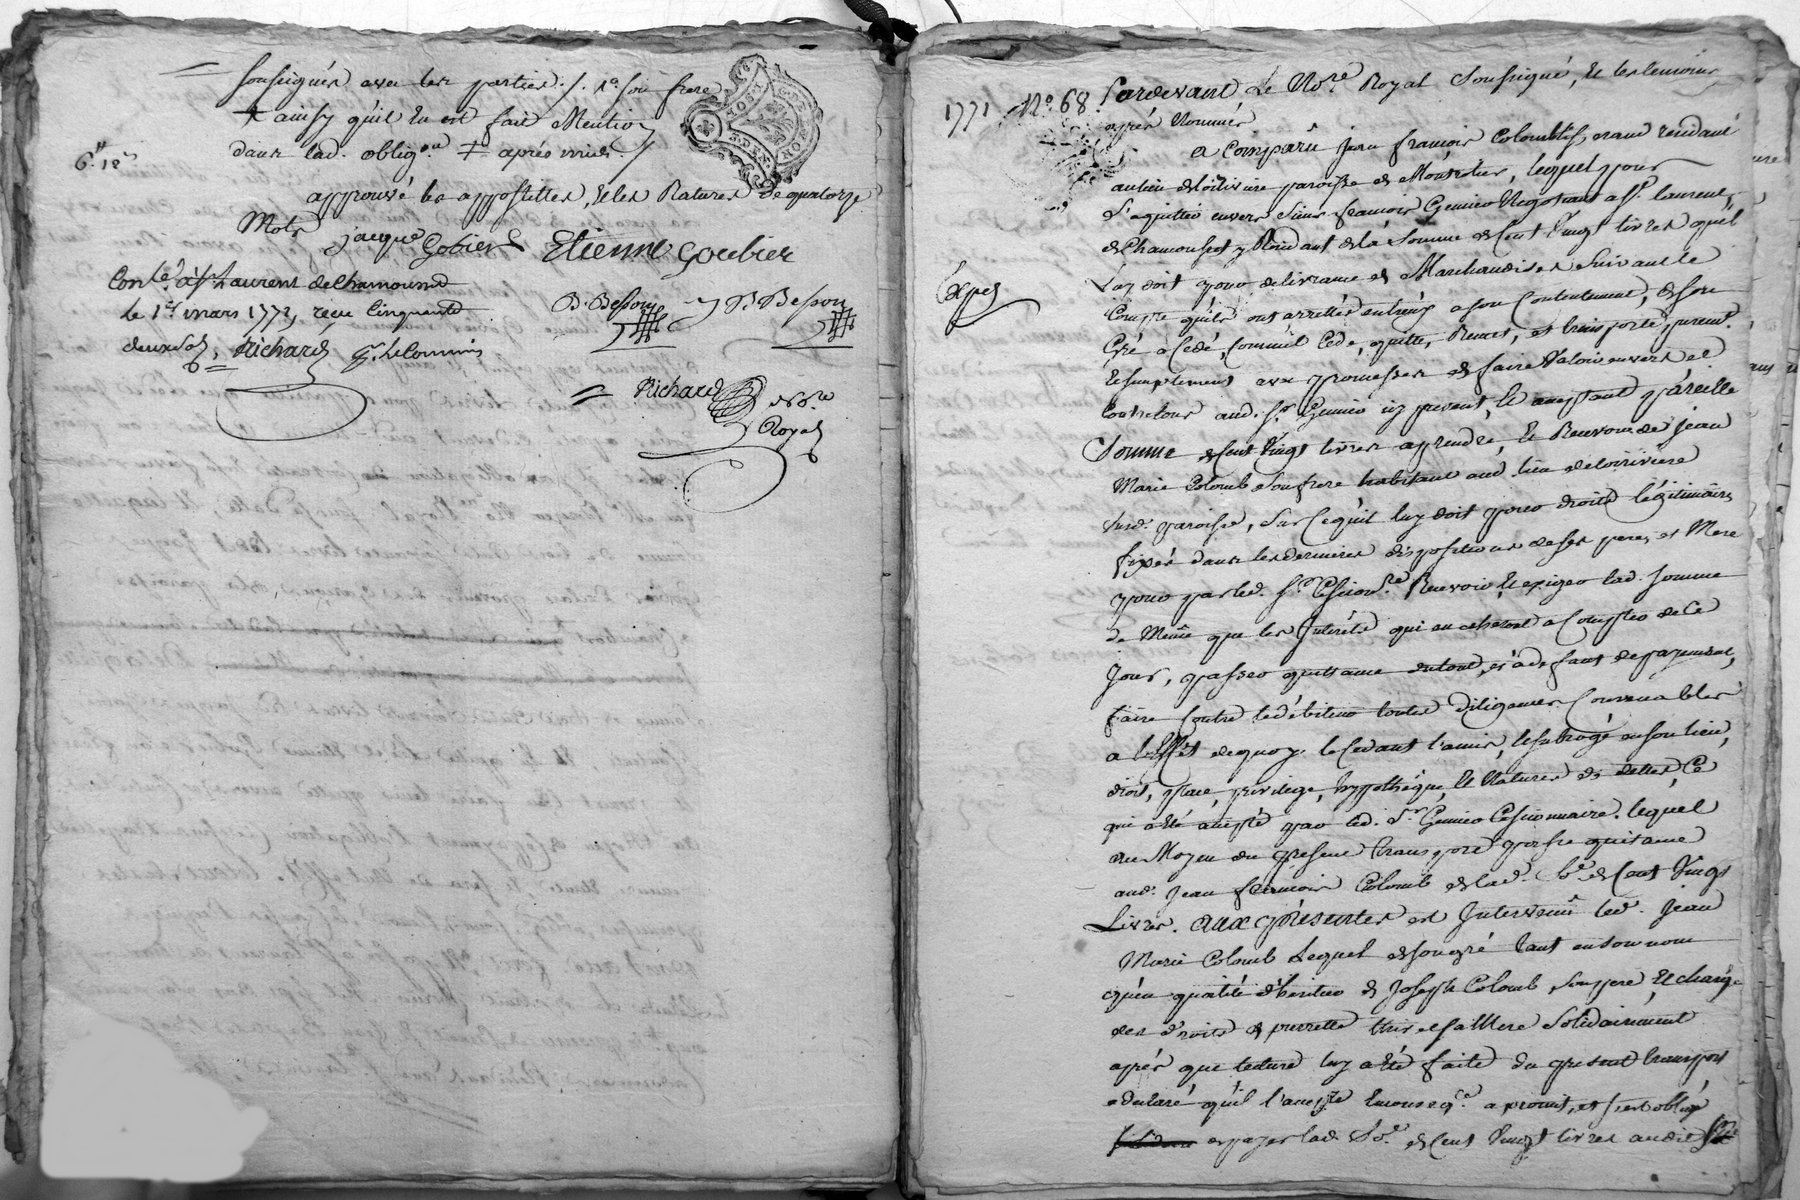 soussignés avec les parties ./. 1° son frere
+ ainsy qu'il en est fait Mention
dans lad. oblig.on + aprés mis ./.
6.tt 12s
approuvé les appostilles, et les Ratures de quatorze
Mots
jacque Gobier Etienne goubier
Con.lé à St Laurent de chamousset
le 1er mars 1771, reçu Cinquante
deux sols, Richard
B. Besson P. Besson
Richard No.re
Royal
1771 N° 68 Pardevant Le No.re Royal soussigné, et les temoins
aprés Nommés
a Comparu jean françois Colomb residant
au lieu de loirivire paroisse de Montrotier, lequel pour
s'aquitter envers sieur françois Negotiant a St. laurent
de Chamousset y Residant de la somme de Cent Vingt livres qu'il
Exped
luy doit pour delivrance de Marchandises suivant le
Compte qu'ils ont arrettés entr'eux a son Contentement, de son
Gré a Cedé, Comm'il Cede, quitte, Remet, et transporte purem.t
et simplement avec promesses de faire Valoir envers et
Contre tous aud. Sr. icy present, et acceptant pareille
Somme de Cent Vingt livres a prendre, et Recevoir de jean
Marie Colomb son frere habitant aud. lieu de loirivire
susd. paroisse, sur Ce qu'il luy doit pour droits légitimaires
fixés dans les dernieres dispositions de ses pere, et Mere
pour par led. Sr. Cession.re Recevoir, et exiger lad. somme
de Même que les Interêts qui en echeront a Compter de Ce
Jour, passer quittance du tout, et à defaut de payement,
faire Contre le débiteur toutes diligences Convenables
a l'effêt de quoy le Cedant l'a mis, et subrogé en son lieu,
droit, place, privilége, hyppothéque, et Nature de dettes, Ce
qui a êté accepté par led. Sr. Cessionnaire. lequel
au Moyen du present transport passe quitance
aud. Jean françois Colomb de lad. So.e de Cent Vingt
Livres. aux présentes est Intervenu led. Jean
Marie Colomb Lequel de son gré tant en son nom
qu'en qualité d'heritier de Joseph Colomb son pere et chargé
des droits de pierrette sa Mere solidairement
aprés que lecture luy a êté faite du present transport
a declaré qu'il l'accepte Enconseq.ce a promis, et s'est obligé
de payer lad. So.e de Cent Vingt livres audit Sr